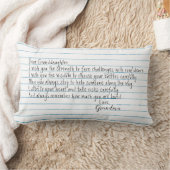 Dear Granddaughter,
I wish you the strength to face challenges with confidence
I wish you the wisdom to choose your battles carefully
I wish you always stop to help someone along the way
Listen to your heart and take risks carefully
And always remember how much you are loved!
Love,
Grandma